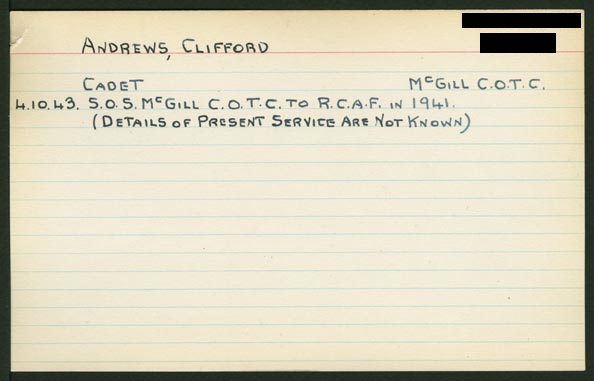 ANDREWS, CLIFFORD
CADET McGILL C.O.T.C.
4.10.43. S.O.S. McGILL C.O.T.C. TO R.C.A.F. IN 1941.
(DETAILS OF PRESENT SERVICE ARE NOT KNOWN)